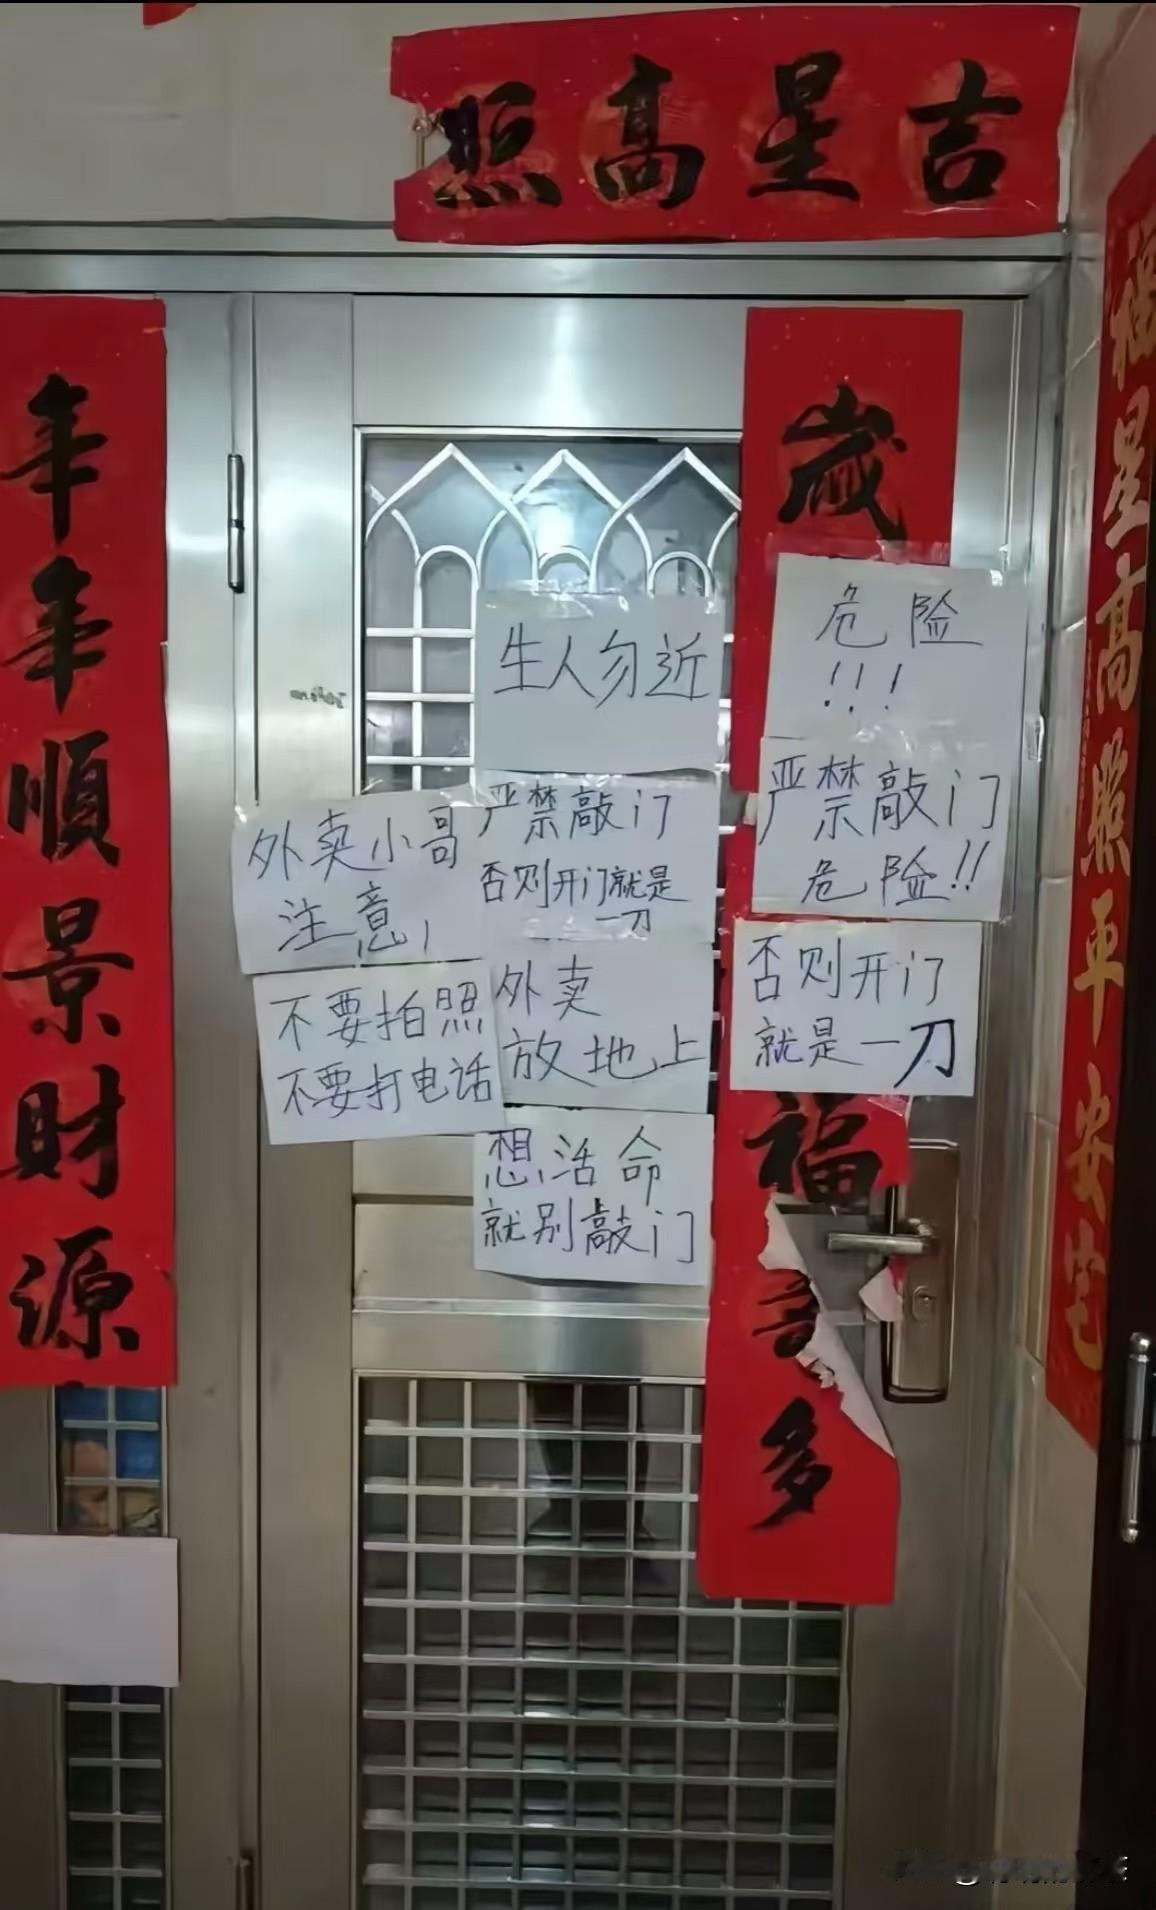 吉星高照
年年順景財源
歲
福
多
福星高照平安宅
生人勿近
危险
!!!
严禁敲门
危险!!
否则开门
就是一刀
严禁敲门
否则开门就是
一刀
外卖小哥
注意!
不要拍照
不要打电话
外卖
放地上
想活命
就别敲门